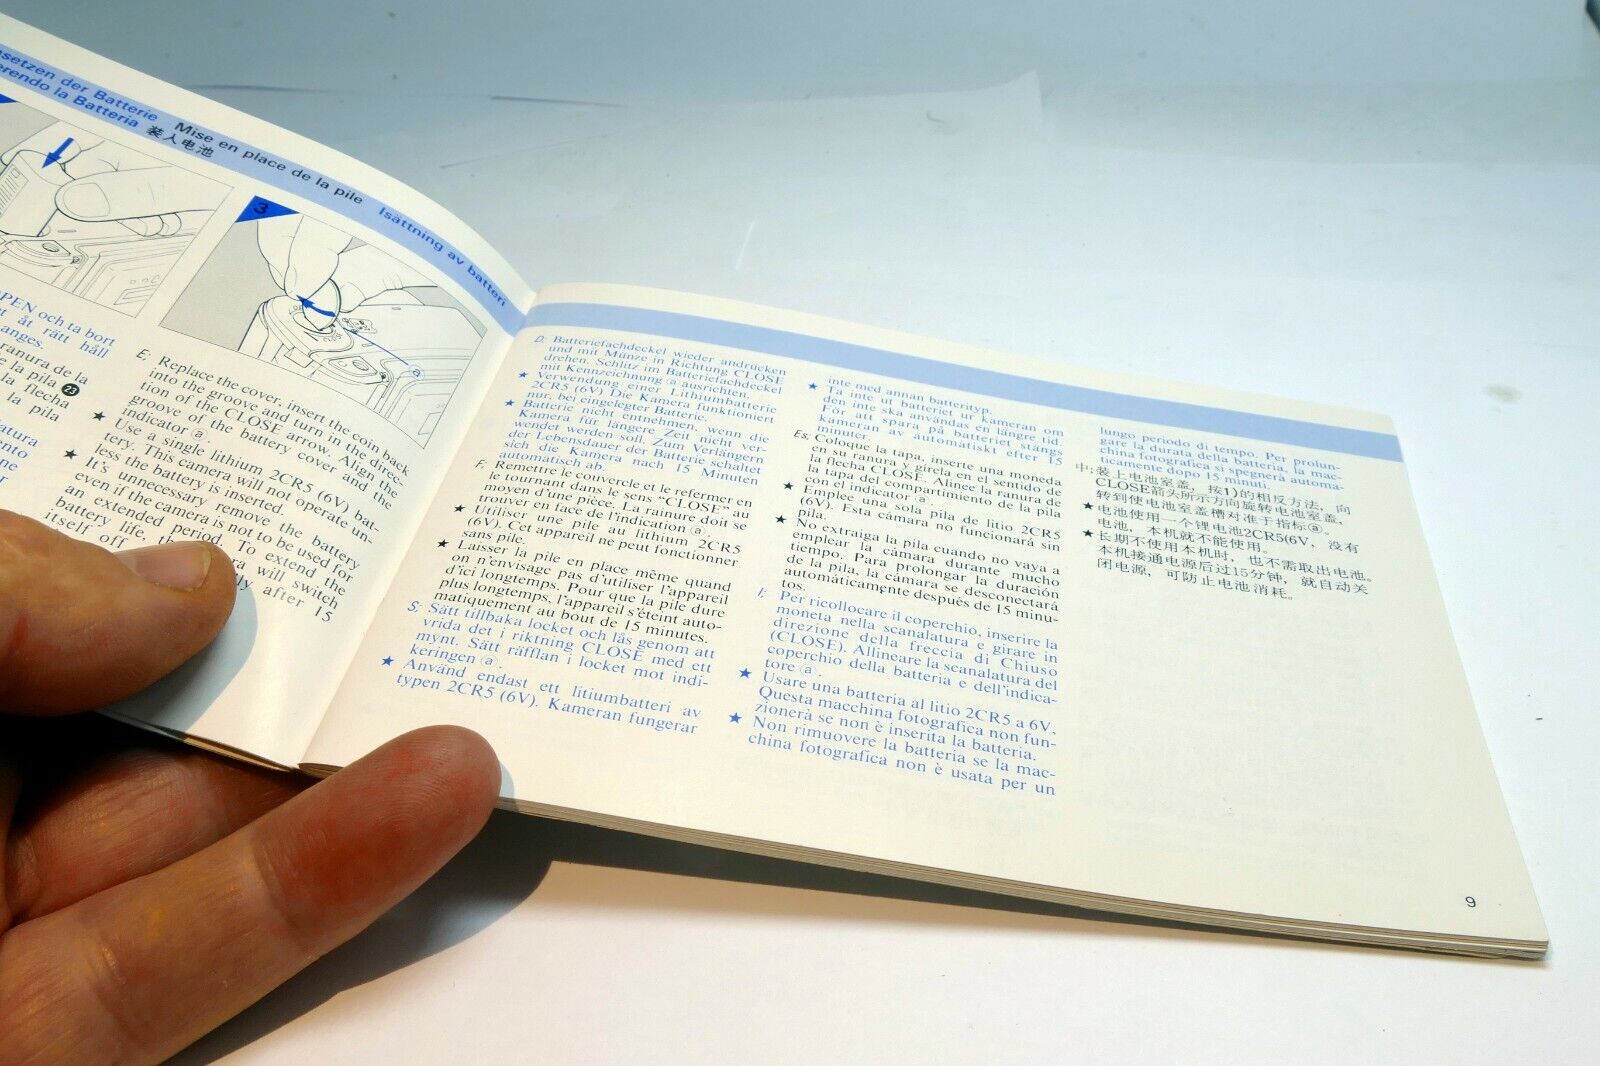 setzen der Batterie Mise en place de la pile Isättning av batteri
erendo la Batteria 装入电池
3
a
PEN och ta bort
t åt rätt håll
anges.
ranura de la
e la pila 23
la flecha
la pila
E: Replace the cover, insert the coin back
into the groove and turn in the direc-
tion of the CLOSE arrow. Align the
groove of the battery cover and the
indicator ⓐ.
★ Use a single lithium 2CR5 (6V) bat-
tery. This camera will not operate un-
less the battery is inserted.
★ It's unnecessary remove the battery
even if the camera is not to be used for
an extended period. To extend the
battery life, will switch
itself off after 15
D: Batteriefachdeckel wieder andrücken
und mit Münze in Richtung CLOSE
drehen. Schlitz im Batteriefachdeckel
mit Kennzeichnung ⓐ ausrichten.
★ Verwendung einer Lithiumbatterie
2CR5 (6V) Die Kamera funktioniert
nur, bei eingelegter Batterie.
★ Batterie nicht entnehmen, wenn die
Kamera für längere Zeit nicht ver-
wendet werden soll. Zum Verlängern
der Lebensdauer der Batterie schaltet
sich die Kamera nach 15 Minuten
automatisch ab.
F: Remettre le couvercle et le refermer en
le tournant dans le sens "CLOSE" au
moyen d'une pièce. La rainure doit se
trouver en face de l'indication ⓐ.
★ Utiliser une pile au lithium 2CR5
(6V). Cet appareil ne peut fonctionner
sans pile.
★ Laisser la pile en place même quand
on n'envisage pas d'utiliser l'appareil
d'ici longtemps. Pour que la pile dure
plus longtemps, l'appareil s'éteint auto-
matiquement au bout de 15 minutes.
S: Sätt tillbaka locket och lås genom att
vrida det i riktning CLOSE med ett
mynt. Sätt räfflan i locket mot indi-
keringen ⓐ.
★ Använd endast ett litiumbatteri av
typen 2CR5 (6V). Kameran fungerar
inte med annan batterityp.
★ Ta inte ur batteriet ur kameran om
den inte ska användas en längre tid.
För att spara på batteriet stängs
kameran av automatiskt efter 15
minuter.
Es: Coloque la tapa, inserte una moneda
en su ranura y gírela en el sentido de
la flecha CLOSE. Alinee la ranura de
la tapa del compartimiento de la pila
con el indicator ⓐ.
★ Emplee una sola pila de litio 2CR5
(6V). Esta cámara no funcionará sin
pila.
★ No extraiga la pila cuando no vaya a
emplear la cámara durante mucho
tiempo. Para prolongar la duración
de la pila, la cámara se desconectará
automáticamente después de 15 minu-
tos.
I: Per ricollocare il coperchio, inserire la
moneta nella scanalatura e girare in
direzione della freccia di Chiuso
(CLOSE). Allineare la scanalatura del
coperchio della batteria e dell'indica-
tore ⓐ.
★ Usare una batteria al litio 2CR5 a 6V.
Questa macchina fotografica non fun-
zionerà se non è inserita la batteria.
★ Non rimuovere la batteria se la mac-
china fotografica non è usata per un
lungo periodo di tempo. Per prolun-
gare la durata della batteria, la mac-
china fotografica si spegnerà automa-
ticamente dopo 15 minuti.
中: 装上电池室盖，按1)的相反方法，向
CLOSE箭头所示方向旋转电池室盖，
转到使电池室盖槽对准于指标ⓐ。
★ 电池使用一个锂电池2CR5(6V，没有
电池，本机就不能使用。
★ 长期不使用本机时，也不需取出电池。
本机接通电源后过15分钟，就自动关
闭电源，可防止电池消耗。
9